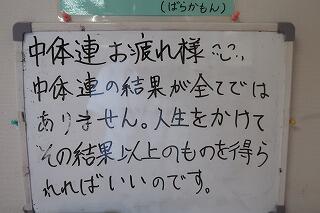 (ばらかもん)
中体連お疲れ様
中体連の結果が全てでは
ありません。人生をかけて
その結果以上のものを得ら
れればいいのです。